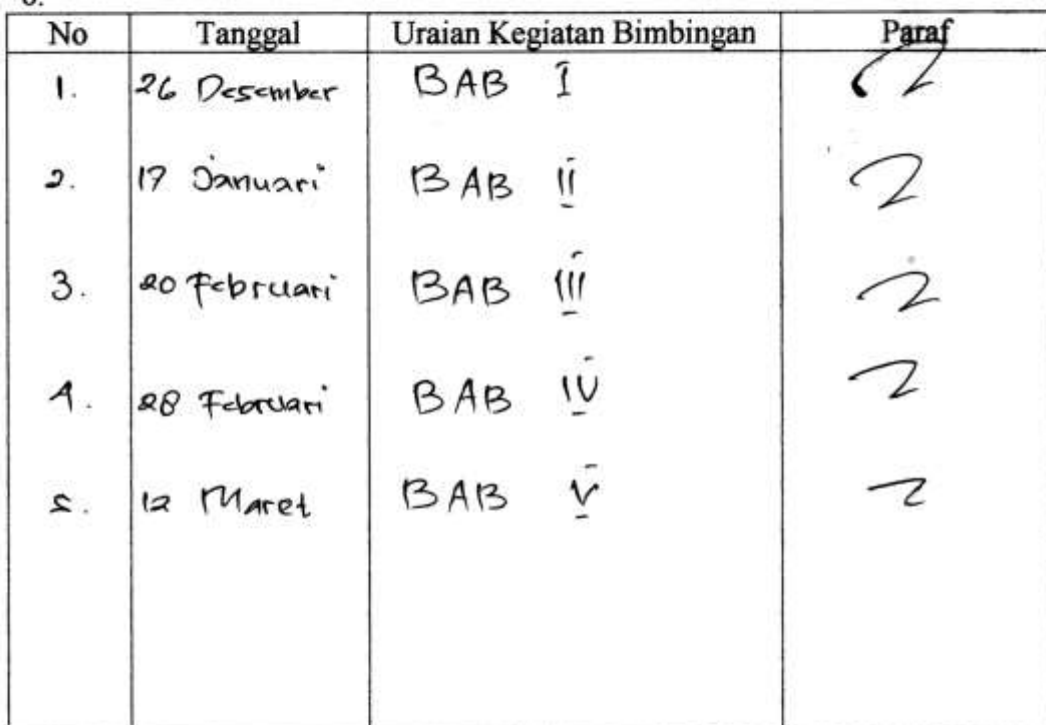 No Tanggal Uraian Kegiatan Bimbingan Paraf
1. 26 Desember BAB I
2. 17 Januari BAB II
3. 20 Februari BAB III
4. 28 Februari BAB IV
5. 12 Maret BAB V